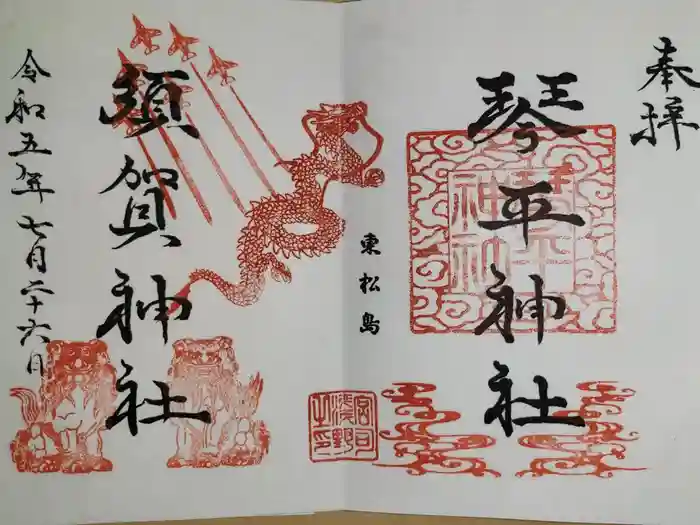 奉拝
琴平神社
琴平
神社
東松島
宮司
浅野
之印
須賀神社
令和五年七月二十六日